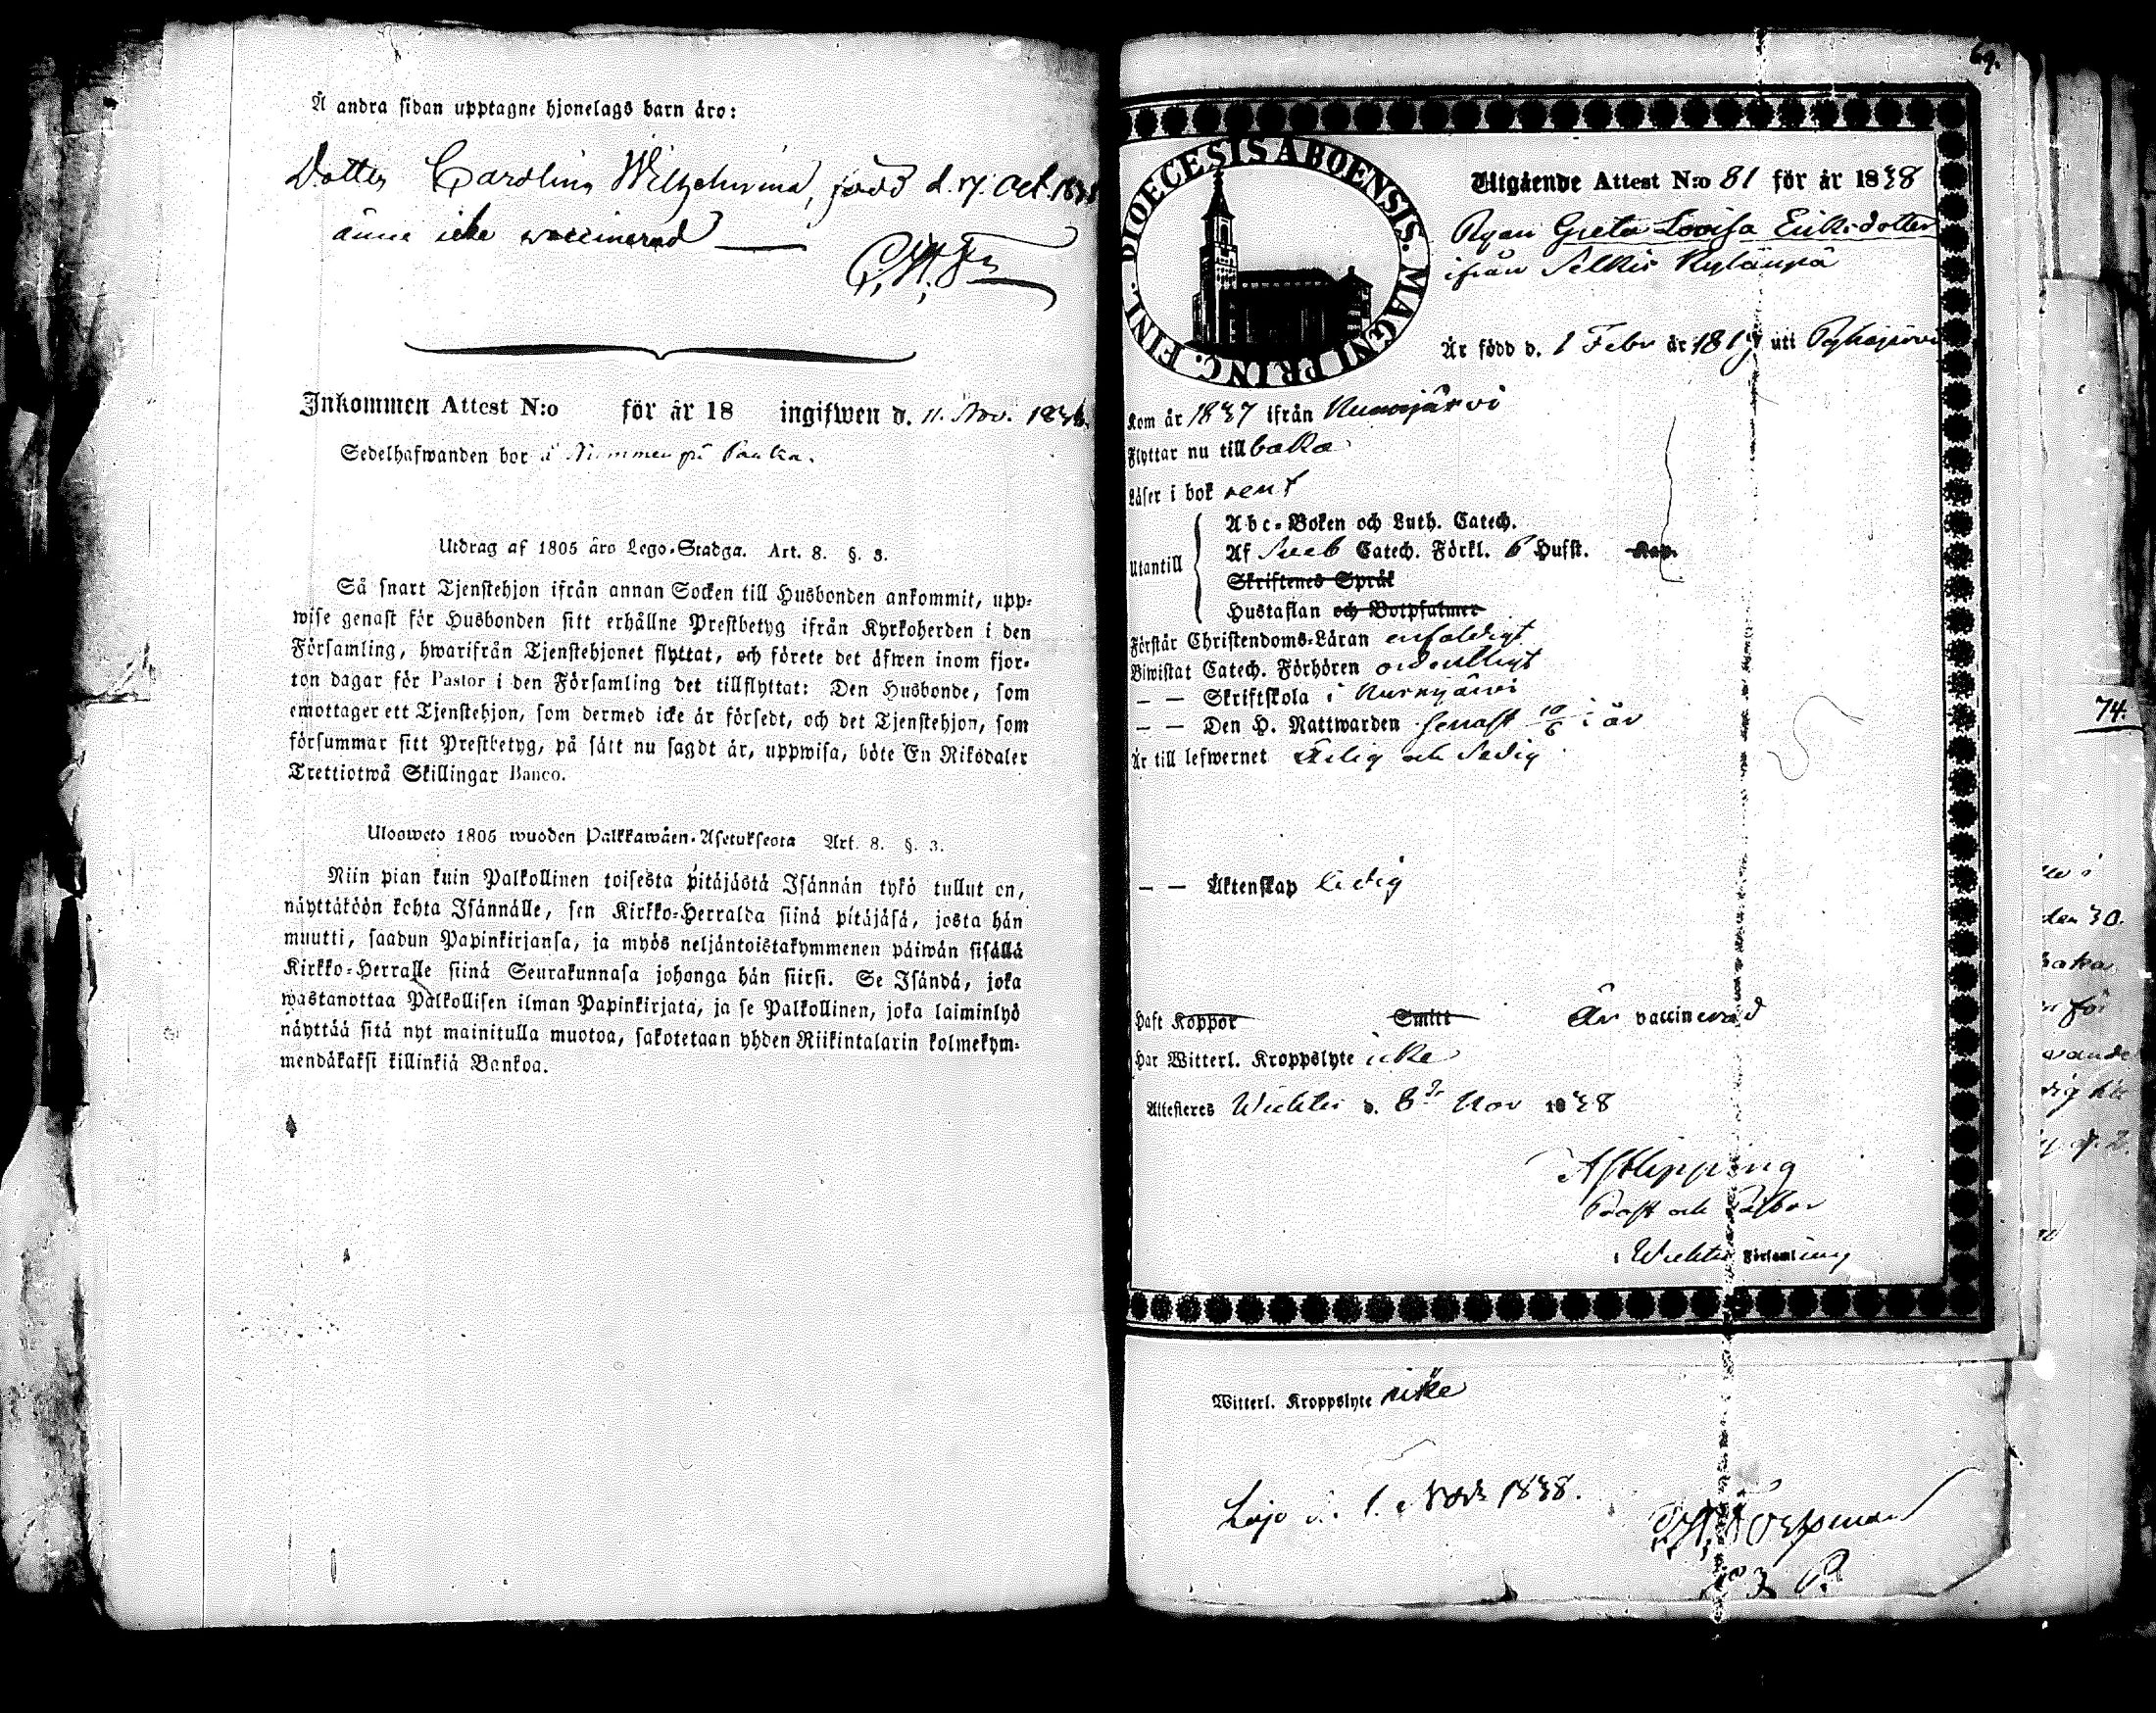 Å andra sidan upptagne hjonelags barn äro:
Dotter Carolina Wilhelmina, född d. 17. Oct. 1838
ännu icke vaccinerad
Inkommen Attest N:o för år 18 ingifwen d. 11. Nov. 1838.
Sedelhafwanden bor å Nummenpä
Utdrag af 1805 års Lego-Stadga. Art. 8. §. 3.
Så snart Tjenstehjon ifrån annan Socken till Husbonden ankommit, upp-
wise genast för Husbonden sitt erhållne Prestbetyg ifrån Kyrkoherden i den
Församling, hwarifrån Tjenstehjonet flyttat, och förete det äfwen inom fjor-
ton dagar för Pastor i den Församling det tillflyttat: Den Husbonde, som
emottager ett Tjenstehjon, som dermed icke är försedt, och det Tjenstehjon, som
försummar sitt Prestbetyg, på sätt nu sagdt är, uppwisa, böte En Riksdaler
Trettiotwå Skillingar Banco.
Ulosweto 1805 wuoden Palkkawäen-Asetuksesta Art. 8. §. 3.
Niin pian kuin Palkollinen toisesta pitäjästä Isännän tykö tullut on,
näyttäköön kohta Isännälle, sen Kirkko-Herralda siinä pitäjäsä, josta hän
muutti, saadun Papinkirjansa, ja myös neljäntoistakymmenen päiwän sisällä
Kirkko-Herralle siinä Seurakunnasa johonga hän siirsi. Se Isändä, joka
wastanottaa Palkollisen ilman Papinkirjata, ja se Palkollinen, joka laiminlyö
näyttää sitä nyt mainitulla muotoa, sakotetaan yhden Riikintalarin kolmekym-
mendäkaksi killinkiä Bankoa.
69.
DIOECESIS ABOENSIS. MAGNI PRINC. FINL.
Utgående Attest N:o 81 för år 1838
Pigan Greta Lovisa Eriksdotter
ifrån Selkis Kylänpä
Är född d. 1 Febr år 1819 uti Pyhäjärvi
Kom år 1837 ifrån Nurmijärvi
Flyttar nu tillbaka
Läser i bok rent
Utantill
Abc-Boken och Luth. Catech.
Af Sveb Catech. Förkl. 6 Hufst. Kap.
Skriftenes Språk
Hustaflan och Botpsalmer
Förstår Christendoms-Läran enfaldigt
Biwistat Catech. Förhören ordentligt
— — Skriftskola i Nurmijärvi
— — Den H. Nattwarden senast 10/6 i år
Är till lefwernet ärlig och sedig
— — Äktenskap ledig
Haft Koppor Smitt Är vaccinerad
Har Witterl. Kroppslyte icke
Attesteras Wichtis d. 8de Nov 1838
Prost och Pastor
i Wichtis Församling
Witterl. Kroppslyte icke
Lojo d. 1. Nov. 1838.
74.
den 30.